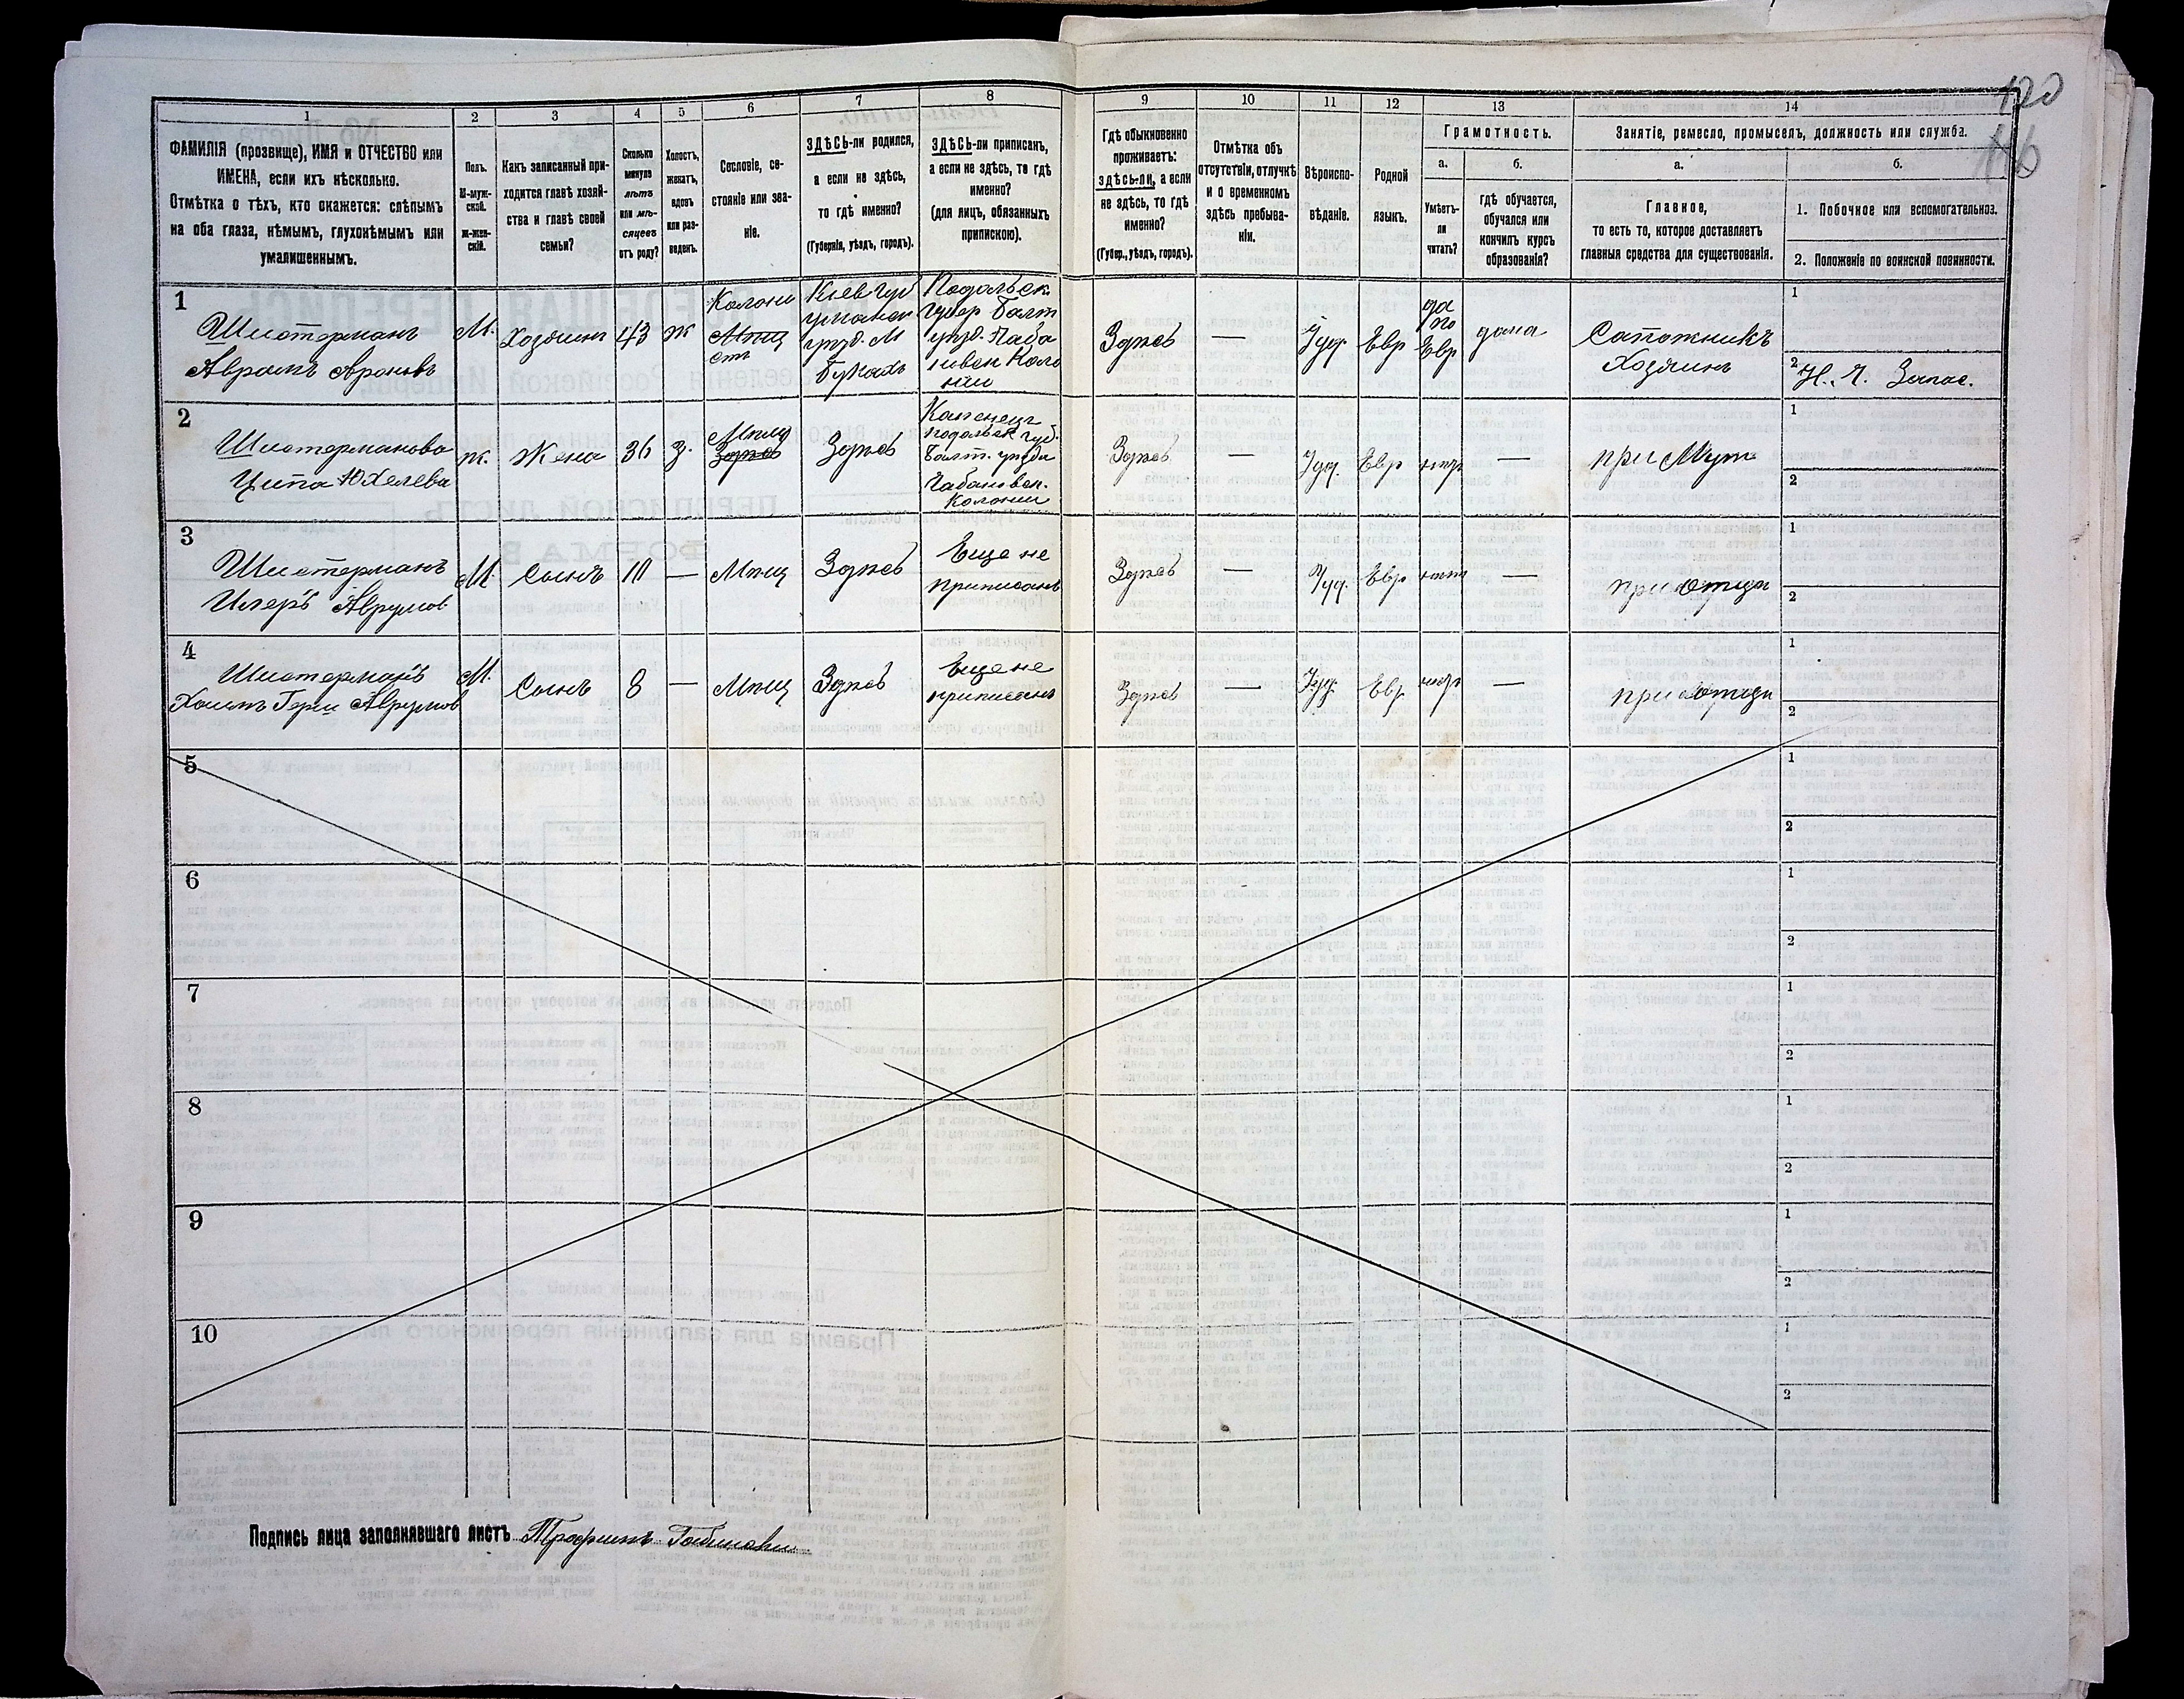 120
116
1 2 3 4 5 6 7 8 9 10 11 12 13 14
ФАМИЛІЯ (прозвище), ИМЯ и ОТЧЕСТВО или
ИМЕНА, если ихъ нѣсколько.
Отмѣтка о тѣхъ, кто окажется: слѣпымъ
на оба глаза, нѣмымъ, глухонѣмымъ или
умалишеннымъ.
Полъ.
М-муж-
ской.
ж-жен-
скій.
Какъ записанный при-
ходится главѣ хозяй-
ства и главѣ своей
семьи?
Сколько
минуло
лѣтъ
или мѣ-
сяцевъ
отъ роду?
Холостъ,
женатъ,
вдовъ
или раз-
веденъ.
Сословіе, со-
стояніе или зва-
ніе.
ЗДѢСЬ-ли родился,
а если не здѣсь,
то гдѣ именно?
(Губернія, уѣздъ, городъ).
ЗДѢСЬ-ли приписан,
а если не здѣсь, то гдѣ
именно?
(для лицъ, обязанныхъ
припискою).
Гдѣ обыкновенно
проживаетъ:
здѣсь-ли, а если
не здѣсь, то гдѣ
именно?
(Губер., уѣздъ, городъ).
Отмѣтка объ
отсутствіи, отлучкѣ
и о временномъ
здѣсь пребыва-
ніи.
Вѣроиспо-
вѣданіе.
Родной
языкъ.
Грамотность.
а.
Умѣетъ-
ли
читать?
б.
гдѣ обучается,
обучался или
кончилъ курсъ
образованія?
Занятіе, ремесло, промыселъ, должность или служба.
а.
Главное,
то есть то, которое доставляетъ
главныя средства для существованія.
б.
1. Побочное или вспомогательное.
2. Положеніе по воинской повинности.
1
Шистерманъ
Аврамъ Ароновъ
М.
Хозяинъ
43
ж
Колони
Мѣщ
Кіев Губ
Уманск
уѣзд. М
Букахъ
Подольск.
Губер Балт
уѣзд.
Коло
ніи
Здѣсь
—
Іуд.
Евр
да
по
Евр
дома
Сапожникъ
Хозяинъ
1
2 Н. Ч. Запас.
2
Шистерманова
Ципа Юхелева
ж.
Жена
36
З.
Мѣщ
Здѣсь
Здѣсь
Подольск Губ.
Балт. уѣзда
Колоніи
Здѣсь
—
Іуд.
Евр
нѣтъ
—
при Мужѣ
1
2
3
Шистерманъ
Аврумов
М.
Сынъ
10
—
Мѣщ
Здѣсь
Еще не
приписанъ
Здѣсь
—
Іуд.
Евр
нѣтъ
—
при Отцѣ
1
2
4
Шистерманъ
Хаимъ Герш Аврумов
М.
Сынъ
8
—
Мѣщ
Здѣсь
Еще не
приписанъ
Здѣсь
—
Іуд.
Евр.
нѣтъ
—
при Отцѣ
1
2
5
1
2
6
1
2
7
1
2
8
1
2
9
1
2
10
1
2
Подпись лица заполнявшаго листъ Трофимъ